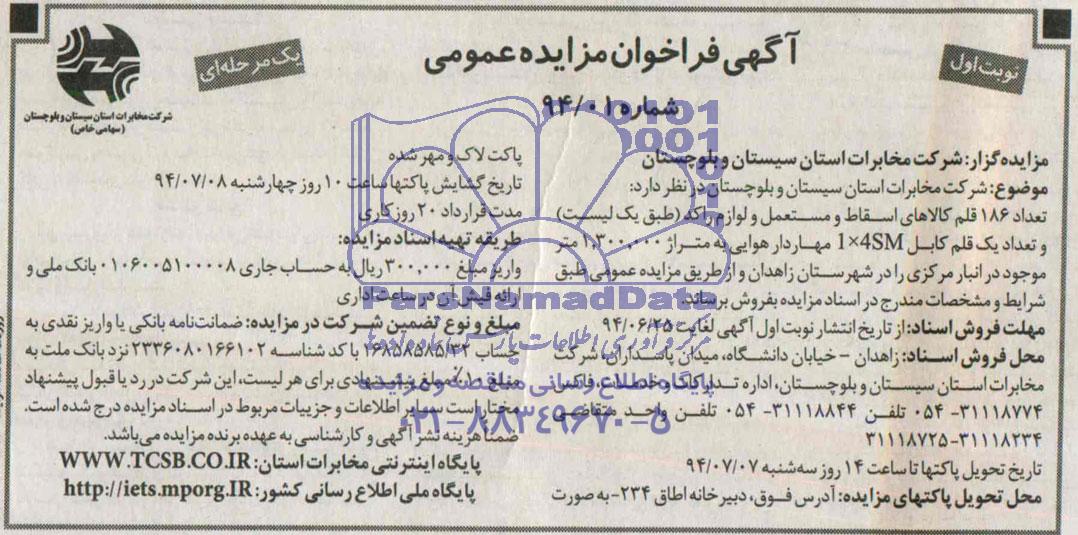 آگهی فراخوان مزایده عمومی
شماره ۹۴/۰۱
نوبت اول
یک مرحله‌ای
شرکت مخابرات استان سیستان و بلوچستان
(سهامی خاص)
مزایده‌گزار: شرکت مخابرات استان سیستان و بلوچستان
موضوع: شرکت مخابرات استان سیستان و بلوچستان در نظر دارد:
تعداد ۱۸۶ قلم کالاهای اسقاط و مستعمل و لوازم راکد (طبق یک لیست)
و تعداد یک قلم کابل 1×4SM مهاردار هوایی به متراژ ۱,۳۰۰,۰۰۰ متر
موجود در انبار مرکزی را در شهرستان زاهدان و از طریق مزایده عمومی طبق
شرایط و مشخصات مندرج در اسناد مزایده بفروش برساند.
مهلت فروش اسناد: از تاریخ انتشار نوبت اول آگهی لغایت ۹۴/۰۶/۲۵
محل فروش اسناد: زاهدان - خیابان دانشگاه، میدان پاسداران، شرکت
مخابرات استان سیستان و بلوچستان، اداره تدارکات و خدمات، فاکس
۳۱۱۱۸۷۷۴- ۰۵۴ تلفن ۳۱۱۱۸۸۴۴- ۰۵۴ تلفن واحد متقاضی
۳۱۱۱۸۷۲۵-۳۱۱۱۸۲۳۴
تاریخ تحویل پاکتها تا ساعت ۱۴ روز سه‌شنبه ۹۴/۰۷/۰۷
محل تحویل پاکتهای مزایده: آدرس فوق، دبیرخانه اطاق ۲۳۴- به صورت
پاکت لاک و مهر شده
تاریخ گشایش پاکتها ساعت ۱۰ روز چهارشنبه ۹۴/۰۷/۰۸
مدت قرارداد ۲۰ روز کاری
طریقه تهیه اسناد مزایده:
واریز مبلغ ۳۰۰,۰۰۰ ریال به حساب جاری ۰۱۰۶۰۰۵۱۰۰۰۰۸ بانک ملی و
ارائه فیش آن در ساعت اداری
مبلغ و نوع تضمین شرکت در مزایده: ضمانت‌نامه بانکی یا واریز نقدی به
حساب ۱۶۸۵۸۵۸۵/۳۲ با کد شناسه ۲۳۳۶۰۸۰۱۶۶۱۰۲ نزد بانک ملت به
مبلغ ۱۰٪ مبلغ پیشنهادی برای هر لیست، این شرکت در رد یا قبول پیشنهاد
مختار است سایر اطلاعات و جزییات مربوط در اسناد مزایده درج شده است.
ضمناً هزینه نشر آگهی و کارشناسی به عهده برنده مزایده می‌باشد.
پایگاه اینترنتی مخابرات استان: WWW.TCSB.CO.IR
پایگاه ملی اطلاع رسانی کشور: http://iets.mporg.IR
ParsNamadData
پایگاه اطلاع رسانی مناقصه و مزایده
۰۲۱-۸۸۳۴۹۶۷۰-۵